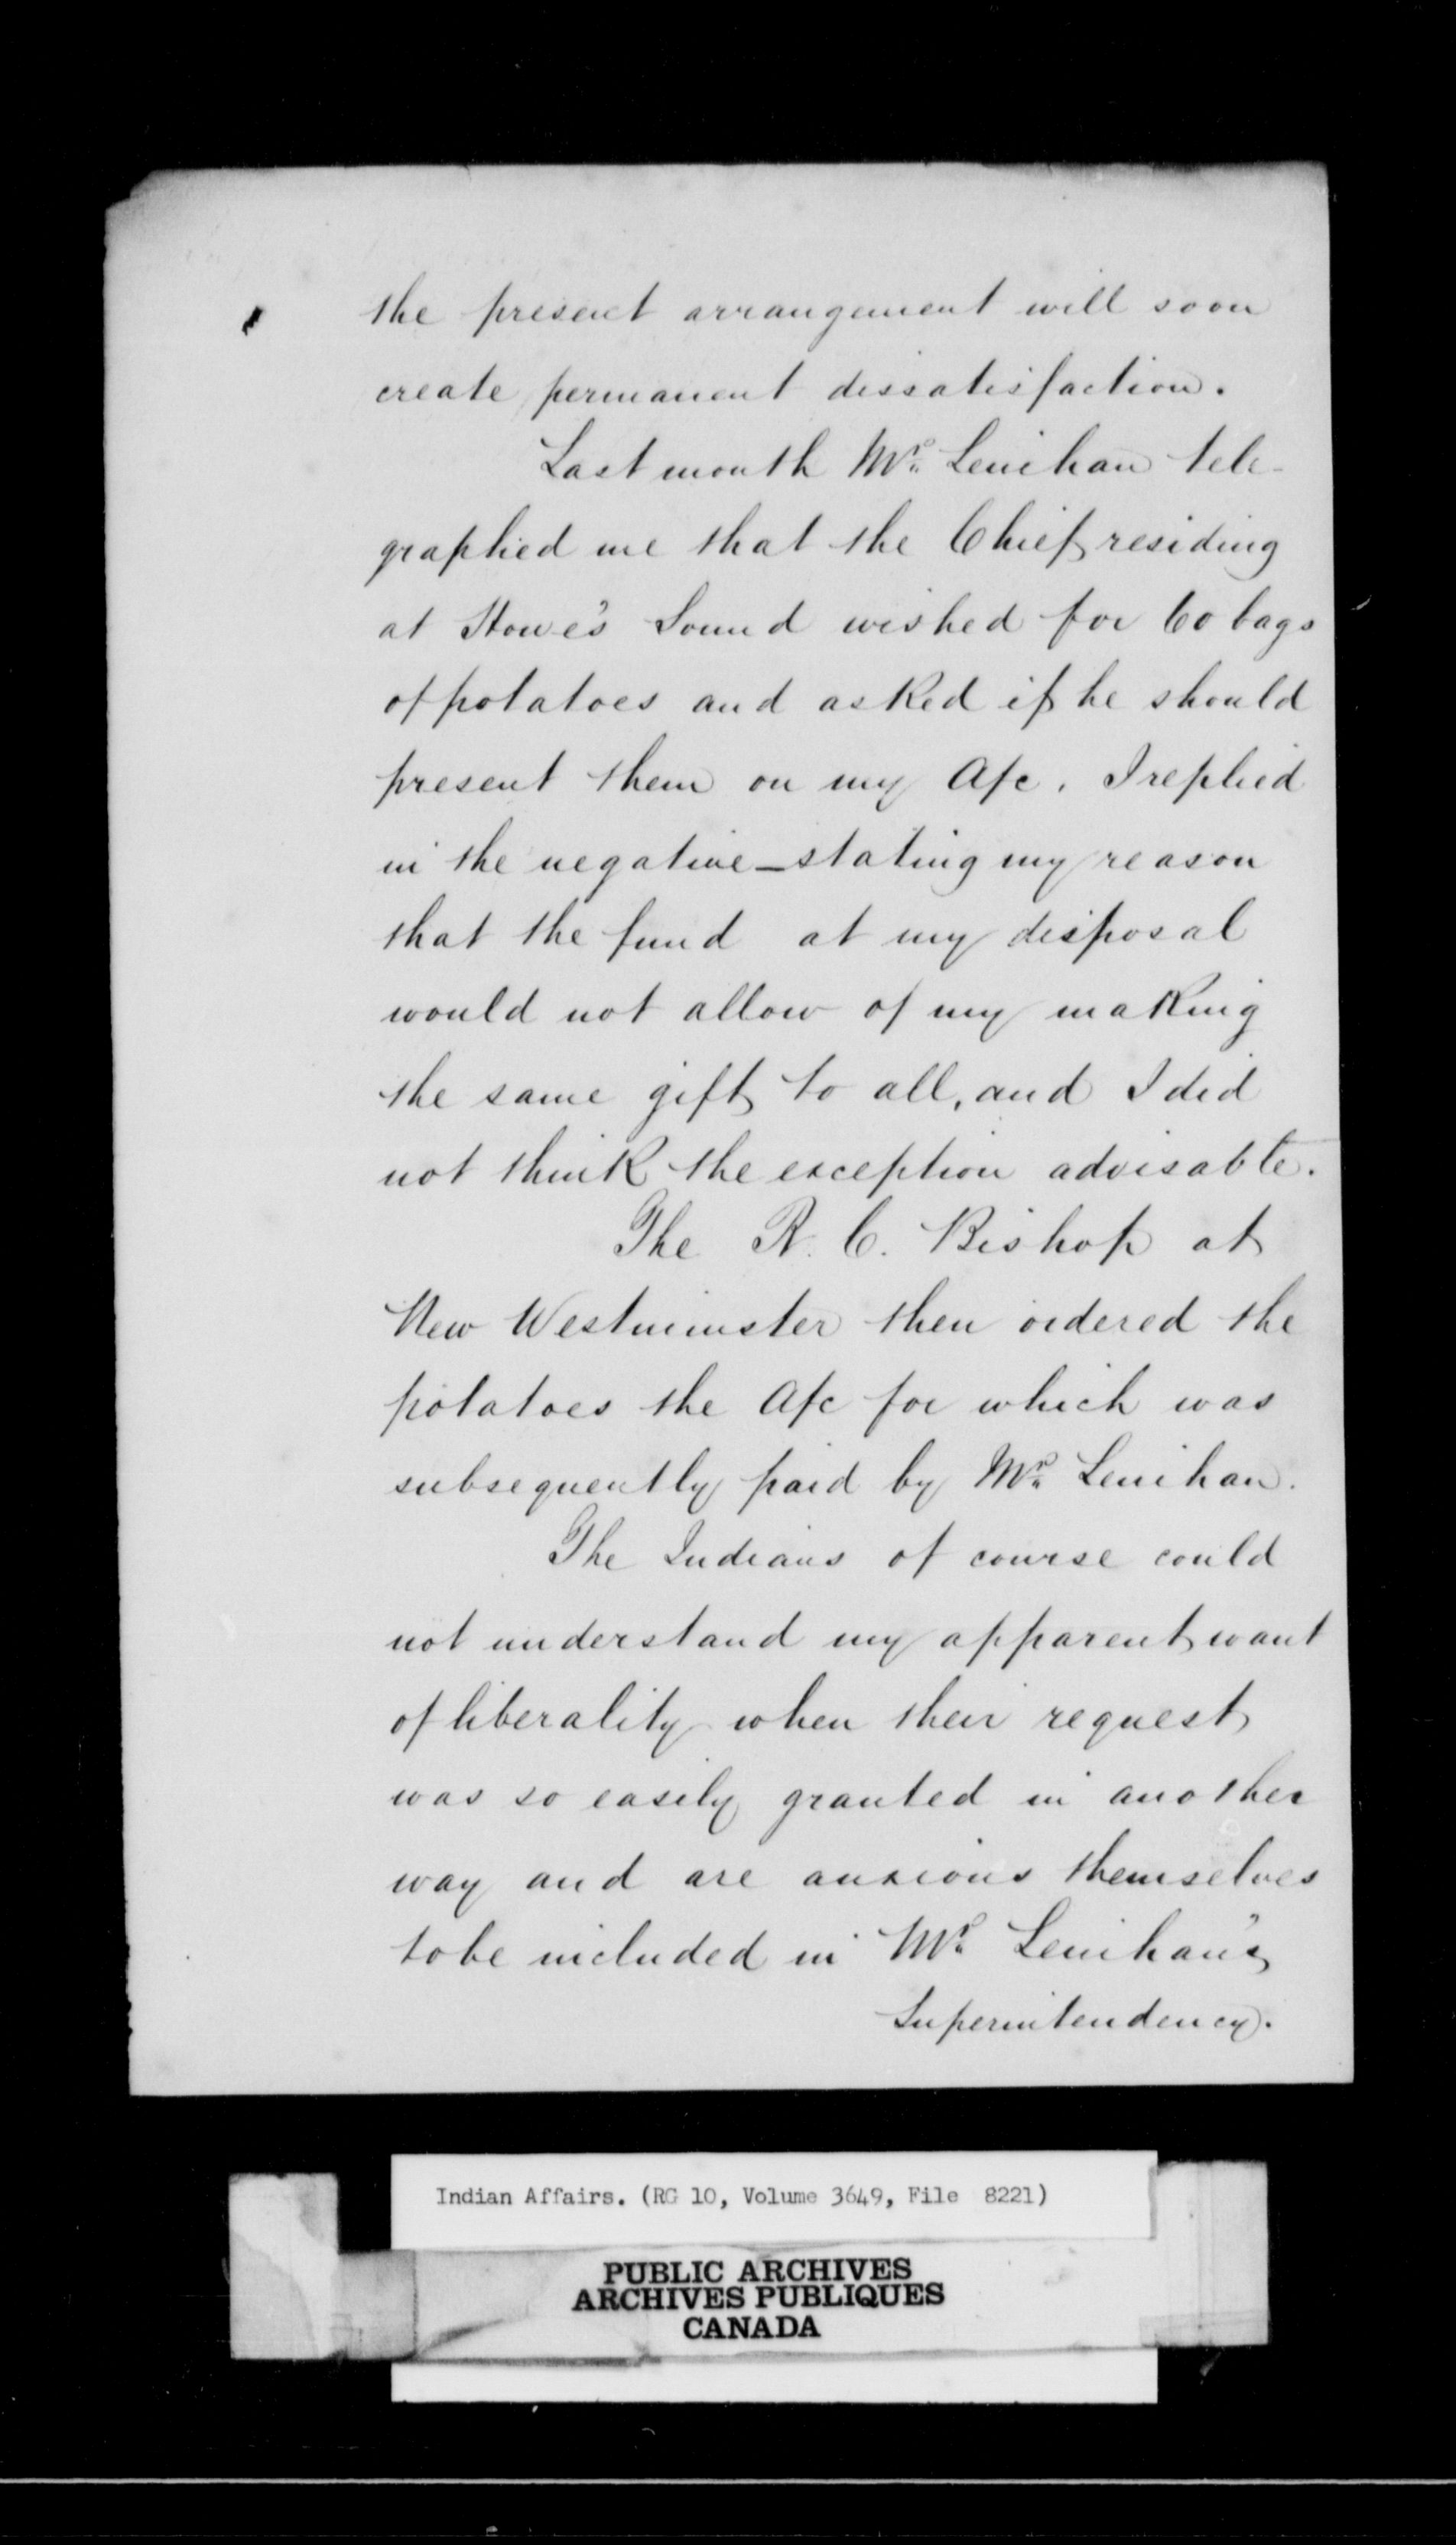 the present arrangement will soon
create permanent dissatisfaction.
Last month Mr. Lenihan tele-
graphed me that the Chief residing
at Howe's Sound wished for 60 bags
of potatoes and asked if he should
present them on my A/c. I replied
in the negative - stating my reason
that the fund at my disposal
would not allow of my making
the same gift to all, and I did
not think the exception advisable.
The R. C. Bishop at
New Westminster then ordered the
potatoes the A/c for which was
subsequently paid by Mr. Lenihan.
The Indians of course could
not understand my apparent want
of liberality when their request
was so easily granted in another
way and are anxious themselves
to be included in Mr. Lenihan's
Superintendency.
Indian Affairs. (RG 10, Volume 3649, File 8221)
PUBLIC ARCHIVES
ARCHIVES PUBLIQUES
CANADA